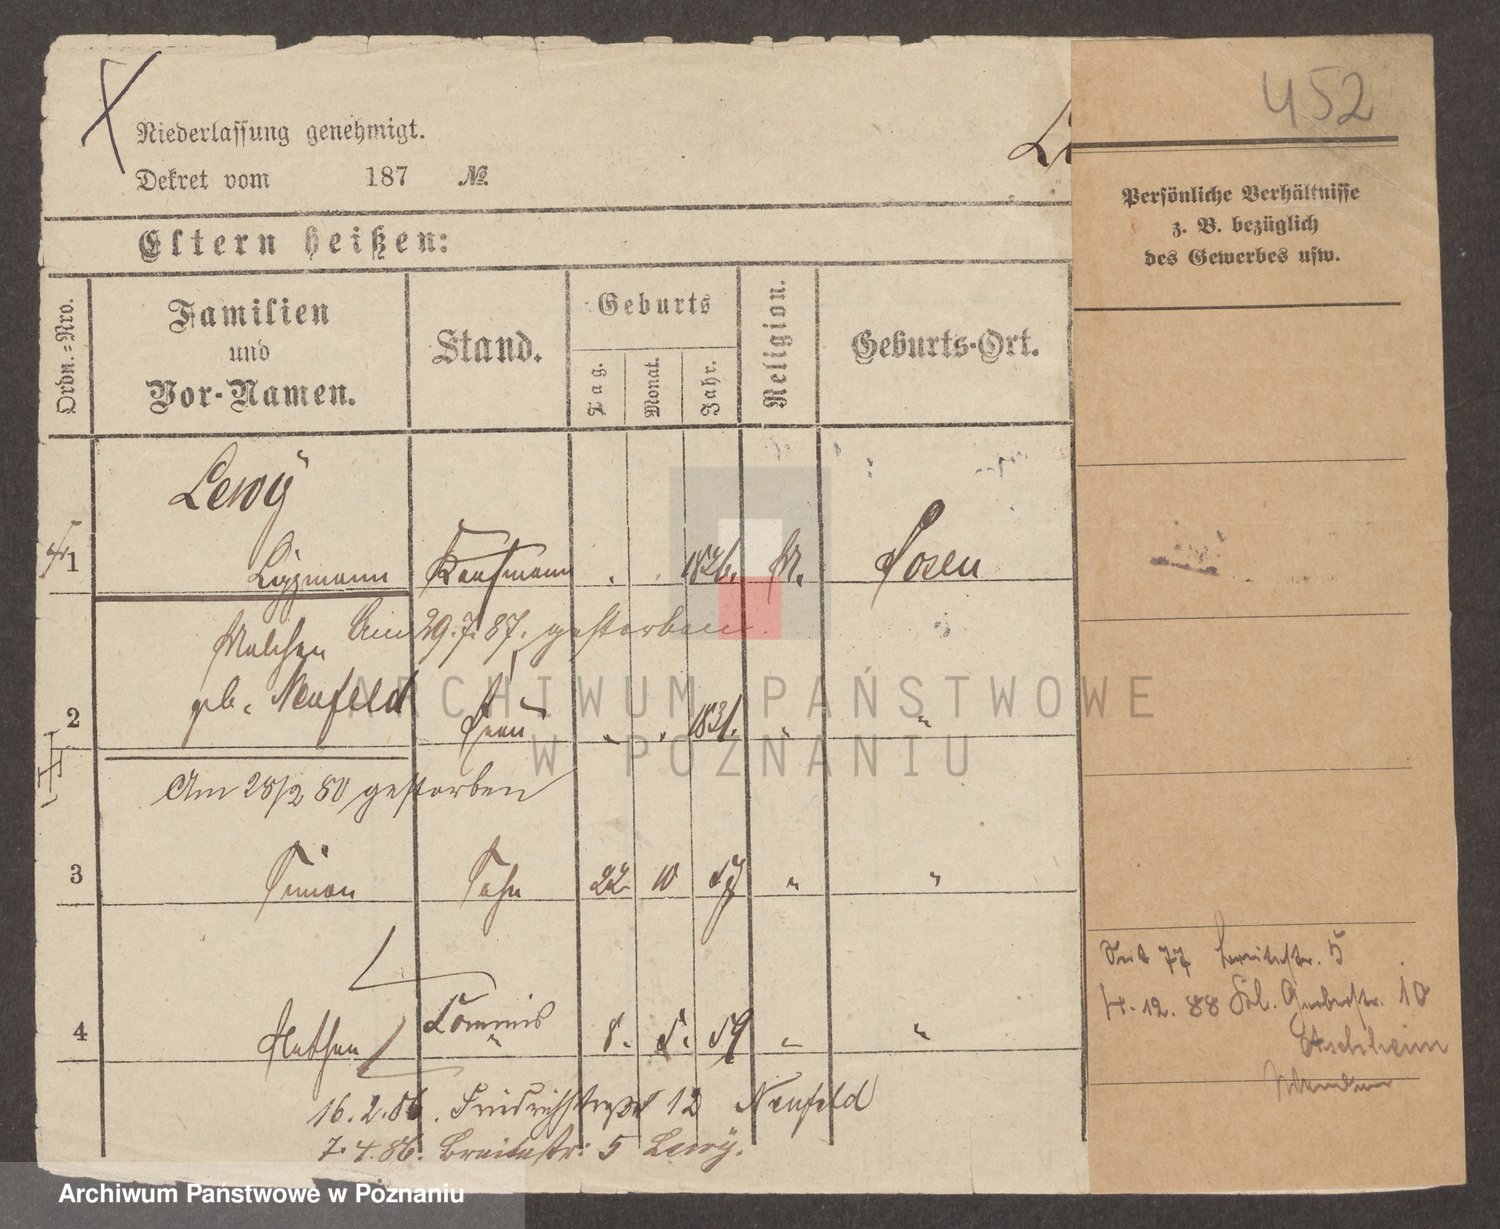 452
Niederlassung genehmigt.
Dekret vom 187 №
Eltern heißen:
Ordn.=Nro.
Familien
und
Vor-Namen.
Stand.
Geburts
Tag.
Monat.
Jahr.
Religion.
Geburts-Ort.
Persönliche Verhältnisse
z. B. bezüglich
des Gewerbes usw.
Lewÿ
1 Lippmann Kaufmann . . 1826. M. Posen
Malchen Am 29.7.87. gestorben.
geb. Neufeld
2 Frau . . 1831. " "
Am 28/2 80 gestorben
3 Simon Sohn 22 10 57 " "
4 Nathan Commis " 8. 5. 59 " "
16.2.86. Friedrichstraße 12 Neufeld
7.4.86. Breitestr. 5 Lewÿ.
Seit 77 Breitestr. 5
4.12.88 Gerberstr. 10
ARCHIWUM PAŃSTWOWE
W POZNANIU
Archiwum Państwowe w Poznaniu